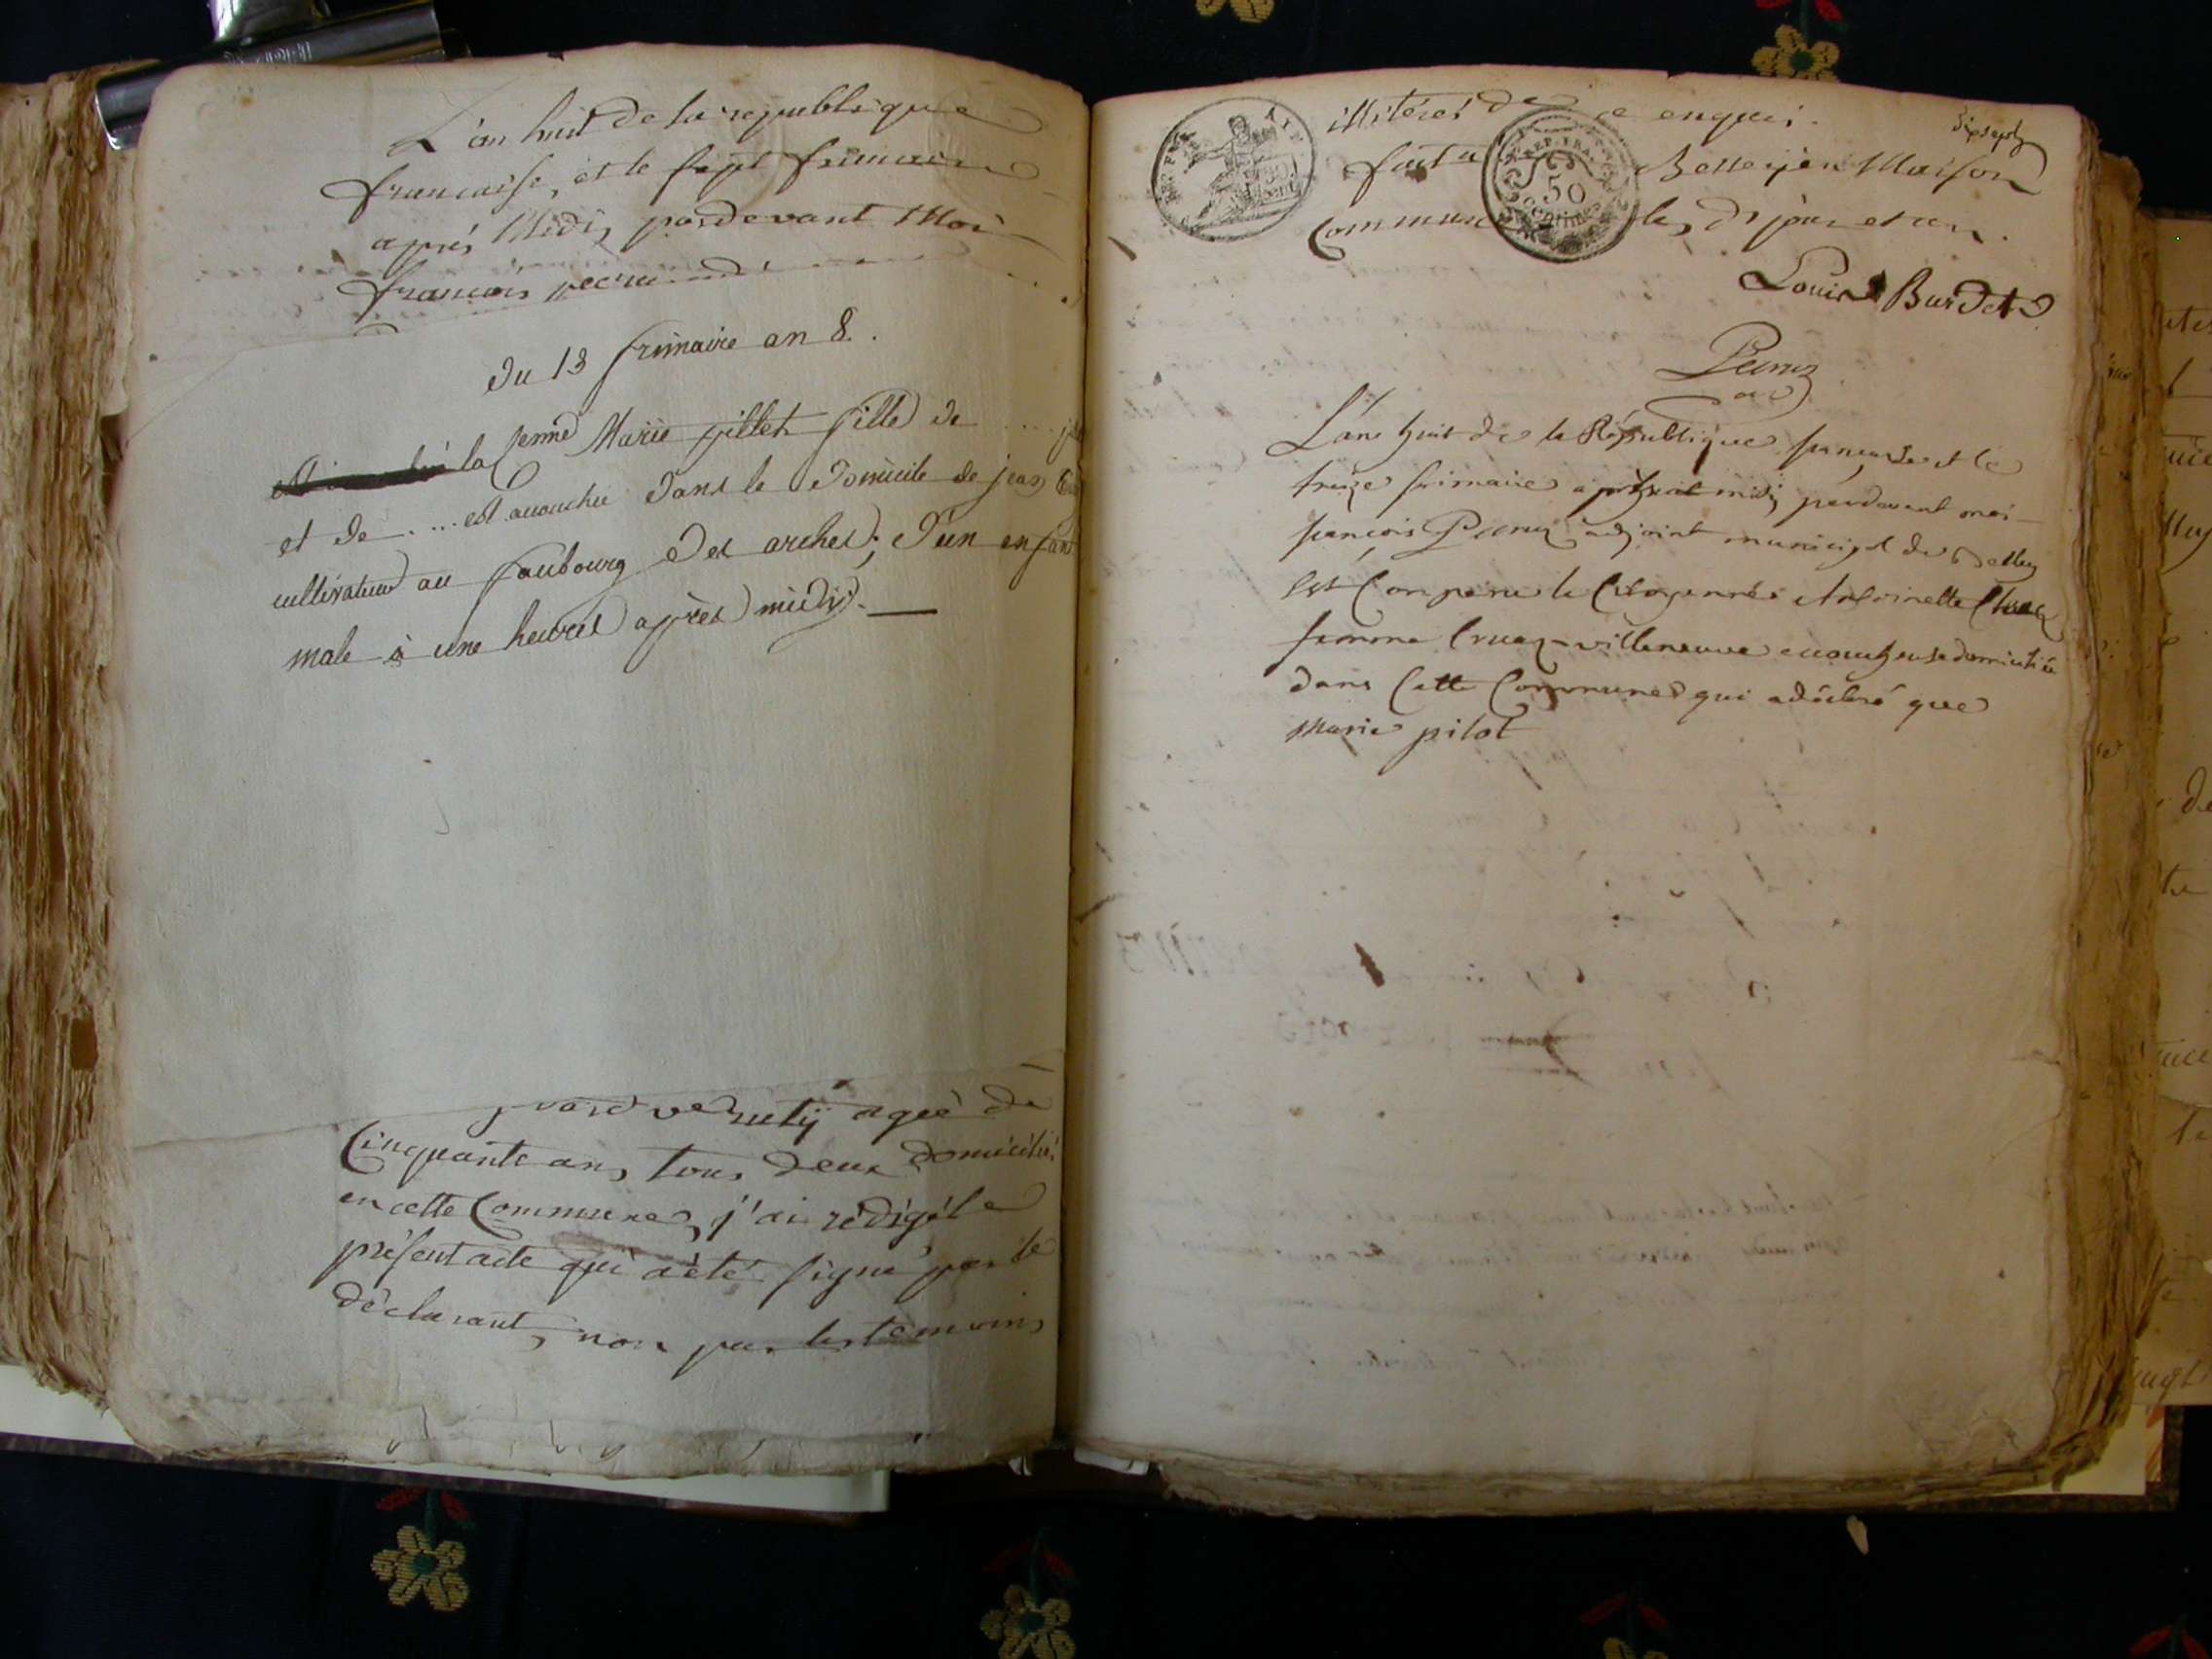 L'an huit de la republique
francaise, et le sept frimaire
aprés Midi, pardevant Moi
francois pecru
du 13 frimaire an 8.
la femme Marie pillet fille de ....
et de .... est accouchée dans le domicile de jean
cultivateur au faubourg des arches; d'un enfant
male à une heures après midy.
agée de
Cinquante ans, tous deux domiciliés
en cette Commune, j'ai rédigé le
présent acte qui a été signé par le
déclarant, non par les témoins
illitérés de ce enquis.
dixsept
fait a Belley en Maison
Commune les d. jour et an.
Louis Burdet
L'an huit de la République francaise et le
treize frimaire après midi, pardevant moi
françois adjoint municipal de Belley
Est Comparue la Citoyenne Antoinette
femme Cruaz-villeneuve accoucheuse domiciliée
dans Cette Commune qui a déclaré que
Marie pilot
REP. FRA.
50
centimes